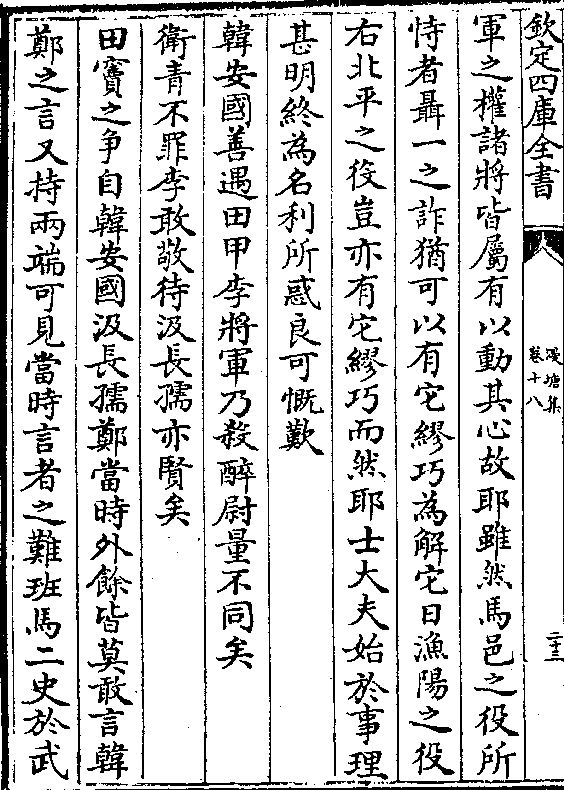 欽定四庫全書
漫塘集
卷十八
二十三
軍之權諸將皆屬有以動其心故耶雖然馬邑之役所
恃者聶一之詐猶可以有它繆巧為解它日漁陽之役
右北平之役豈亦有它繆巧而然耶士大夫始於事理
甚明終為名利所惑良可慨歎
韓安國善遇田甲李將軍乃殺醉尉量不同矣
衛青不罪李敢敬待汲長孺亦賢矣
田竇之爭自韓安國汲長孺鄭當時外餘皆莫敢言韓
鄭之言又持兩端可見當時言者之難班馬二史於武